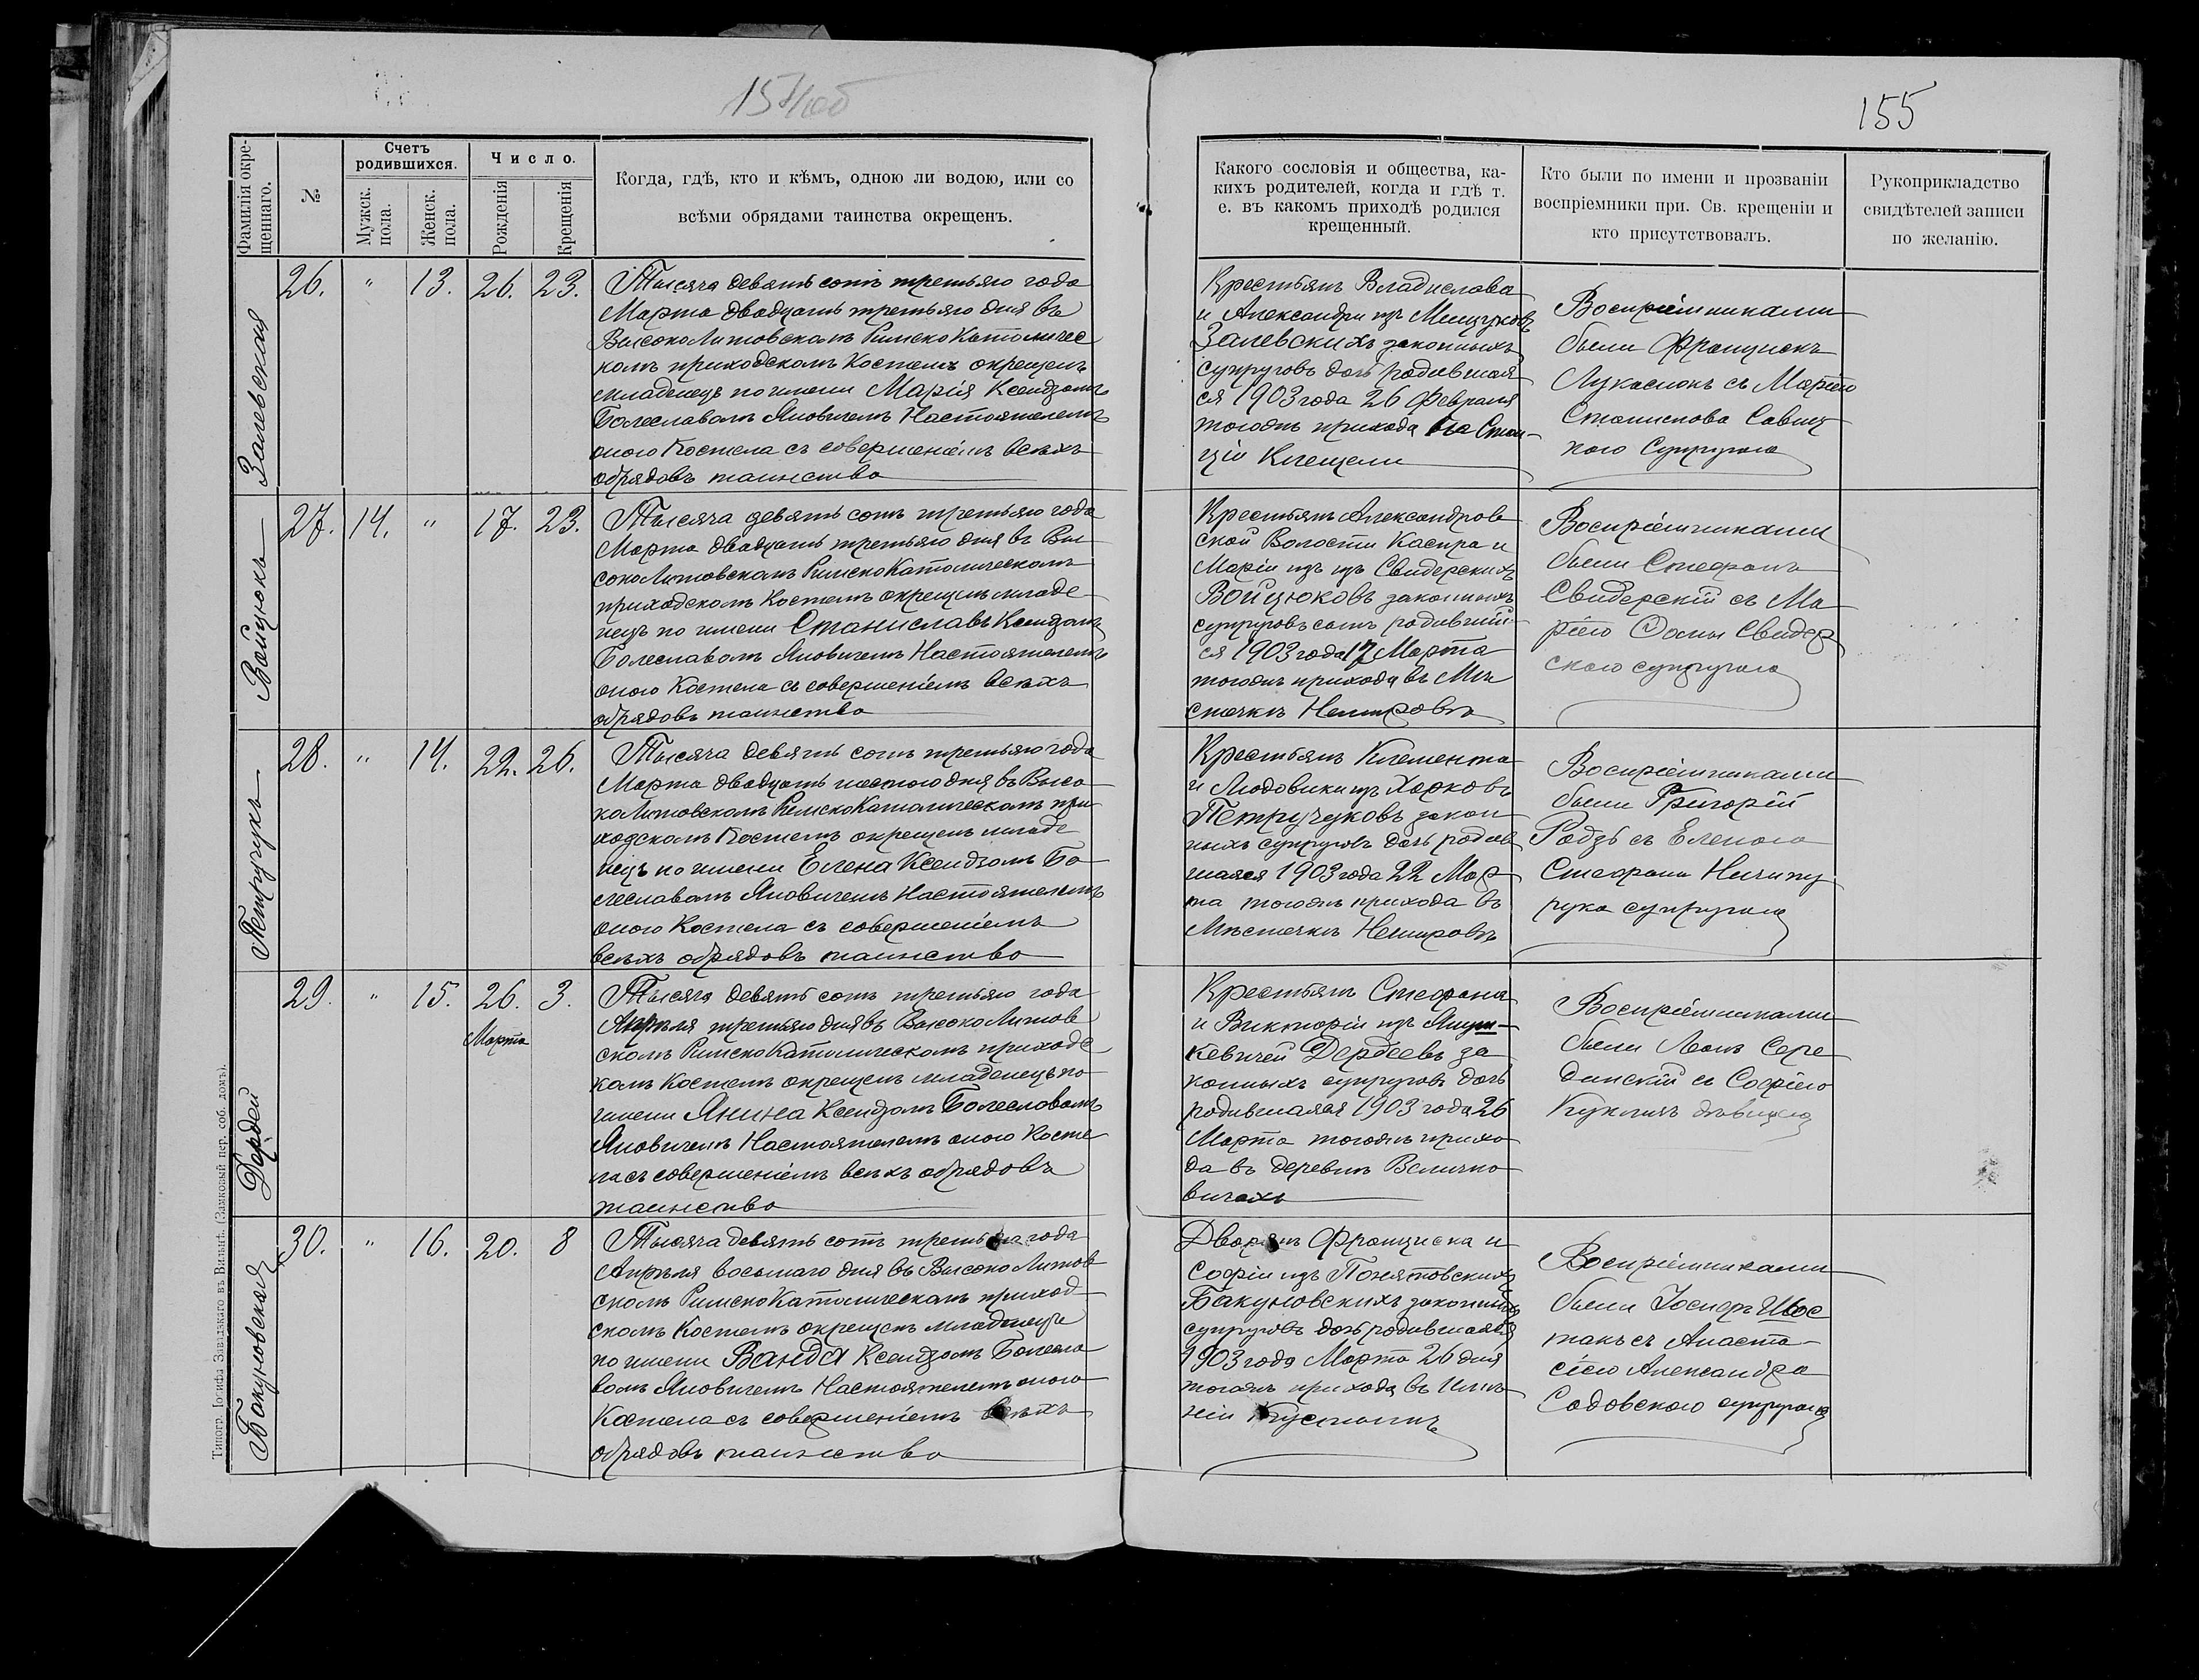 154об
155
Фамилія окре-
щеннаго.
№
Счетъ
родившихся.
Мужск.
пола.
Женск.
пола.
Число.
Рожденія
Крещенія
Когда, гдѣ, кто и кѣмъ, одною ли водою, или со
всѣми обрядами таинства окрещенъ.
Какого сословія и общества, ка-
кихъ родителей, когда и гдѣ т.
е. въ какомъ приходѣ родился
крещенный.
Кто были по имени и прозваніи
воспріемники при. Св. крещеніи и
кто присутствовалъ.
Рукоприкладство
свидѣтелей записи
по желанію.
Залевская
26. " 13. 26. 23.
Тысяча девять сотъ третьяго года
Марта двадцать третьяго дня въ
ВысокоЛитовскомъ РимскоКатоличес
комъ приходскомъ Костелѣ окрещенъ
младенецъ по имени Марія Ксендзомъ
Болеславомъ Яновичемъ Настоятелемъ
оного Костела съ совершеніемъ всѣхъ
обрядовъ таинства
Крестьянъ Владислава
и Александры изъ Мищуковъ
Залевскихъ законныхъ
супруговъ дочь родившая
ся 1903 года 26 Февраля
тогоже прихода на Стан-
ціи Клещели
Воспріемниками
были Францискъ
Лукасюкъ съ Маріею
Станислава Савиц
кого супругою
Войцюкъ
27. 14. " 17. 23.
Тысяча девять сотъ третьяго года
Марта двадцать третьяго дня въ Вы
сокоЛитовскомъ РимскоКатолическомъ
приходскомъ Костелѣ окрещенъ младе
нецъ по имени Станиславъ Ксендзомъ
Болеславомъ Яновичемъ Настоятелемъ
оного Костела съ совершеніемъ всѣхъ
обрядовъ таинства
Крестьянъ Александров
ской Волости Каспра и
Маріи изъ изъ Свидерскихъ
Войцюковъ законныхъ
супруговъ сынъ родившій-
ся 1903 года 17 Марта
тогоже прихода въ Мѣ
стечкѣ Немировѣ
Воспріемниками
были Стефанъ
Свидерскій съ Ма
ріею Фомы Свидер
ского супругою
Петручукъ
28. " 14. 22. 26.
Тысяча девять сотъ третьяго года
Марта двадцать шестого дня въ Высо
коЛитовскомъ РимскоКатолическомъ при
ходскомъ Костелѣ окрещенъ младе
нецъ по имени Елена Ксендзомъ Бо
леславомъ Яновичемъ Настоятелемъ
оного Костела съ совершеніемъ
всѣхъ обрядовъ таинства
Крестьянъ Клемента
и Людовики изъ Харковъ
Петручуковъ закон
ныхъ супруговъ дочь родив
шаяся 1903 года 22 Мар
та тогоже прихода въ
Мѣстечкѣ Немировѣ
Воспріемниками
были Григорій
Радзь съ Еленою
Стефана Ничипу
рука супругою
Дердей
29. " 15. 26. 3.
Марта
Тысяча девять сотъ третьяго года
Апрѣля третьяго дня въ ВысокоЛитов
скомъ РимскоКатолическомъ приходс
комъ Костелѣ окрещенъ младенецъ по
имени Янина Ксендзомъ Болеславомъ
Яновичемъ Настоятелемъ оного Косте
ла съ совершеніемъ всѣхъ обрядовъ
таинства
Крестьянъ Стефана
и Викторіи изъ Януш-
кевичей Дердеевъ за
конныхъ супруговъ дочь
родившаяся 1903 года 26
Марта тогоже прихо
да въ деревнѣ Величко
вичахъ
Воспріемниками
были Леонъ Сере
динскій съ Софіею
Куклич дѣвицею
Бакуновская
30. " 16. 20. 8
Тысяча девять сотъ третьяго года
Апрѣля восьмаго дня въ ВысокоЛитов
скомъ РимскоКатолическомъ приход
скомъ Костелѣ окрещенъ младенецъ
по имени Ванда Ксендзомъ Болесла
вомъ Яновичемъ Настоятелемъ оного
Костела съ совершеніемъ всѣхъ
обрядовъ таинства
Дворянъ Франциска и
Софіи изъ Понятовскихъ
Бакуновскихъ законныхъ
супруговъ дочь родившаяся
1903 года Марта 20 дня
тогоже прихода въ Имѣ
ніи
Воспріемниками
были Іосифъ Шос
такъ съ Анаста-
сіею Александра
Садовского супругою
Типогр. Іосифа Завадзкаго въ Вильнѣ. (Замковый пер. соб. домъ).